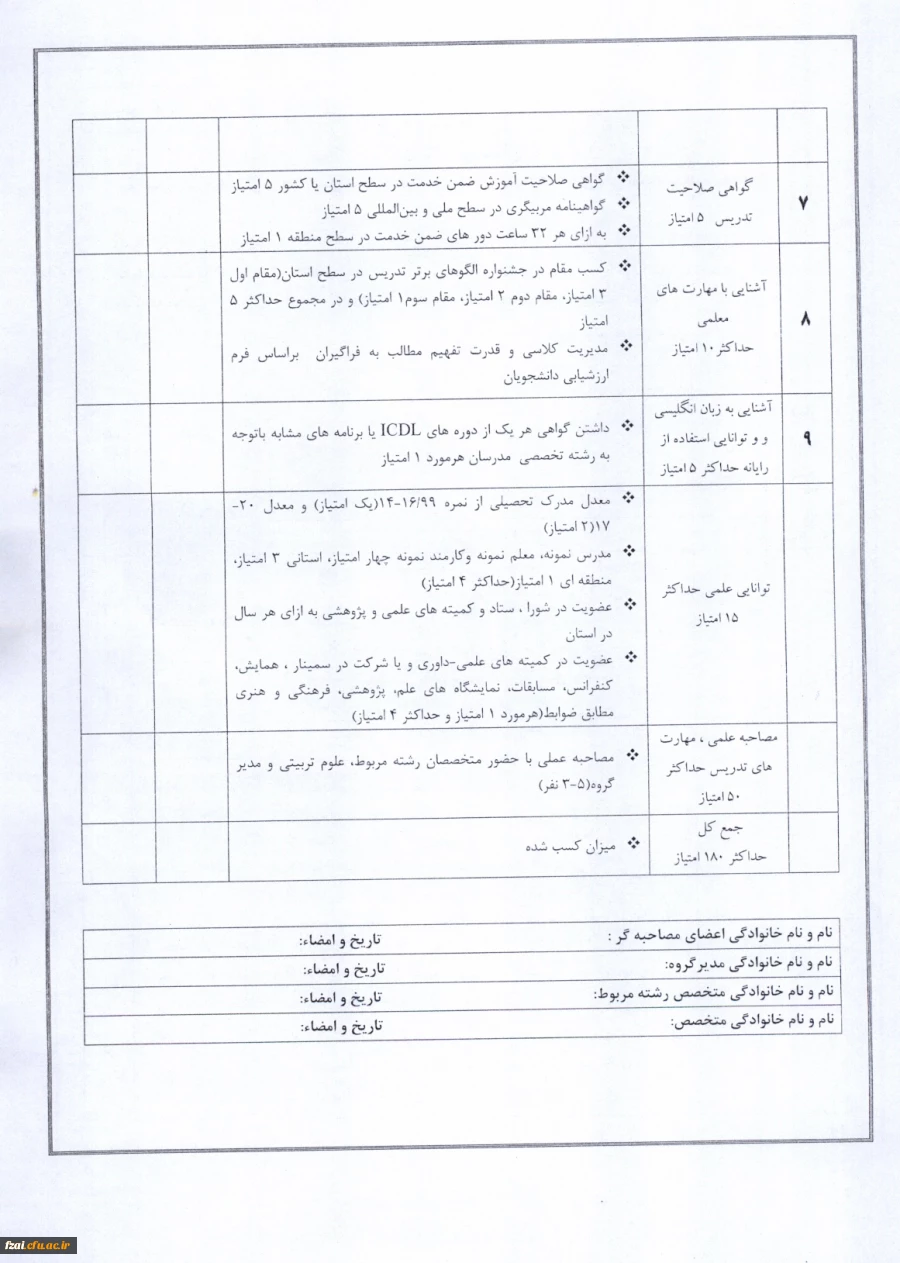 ۷
گواهی صلاحیت
تدریس ۵ امتیاز
❖ گواهی صلاحیت آموزش ضمن خدمت در سطح استان یا کشور ۵ امتیاز
❖ گواهینامه مربیگری در سطح ملی و بین‌المللی ۵ امتیاز
❖ به ازای هر ۳۲ ساعت دور های ضمن خدمت در سطح منطقه ۱ امتیاز
۸
آشنایی با مهارت های
معلمی
حداکثر ۱۰ امتیاز
❖ کسب مقام در جشنواره الگوهای برتر تدریس در سطح استان(مقام اول
۳ امتیاز، مقام دوم ۲ امتیاز، مقام سوم۱ امتیاز) و در مجموع حداکثر ۵
امتیاز
❖ مدیریت کلاسی و قدرت تفهیم مطالب به فراگیران براساس فرم
ارزشیابی دانشجویان
۹
آشنایی به زبان انگلیسی
و و توانایی استفاده از
رایانه حداکثر ۵ امتیاز
❖ داشتن گواهی هر یک از دوره های ICDL یا برنامه های مشابه باتوجه
به رشته تخصصی مدرسان هرمورد ۱ امتیاز
توانایی علمی حداکثر
۱۵ امتیاز
❖ معدل مدرک تحصیلی از نمره ۱۶/۹۹-۱۴(یک امتیاز) و معدل ۲۰-
۱۷(۲ امتیاز)
❖ مدرس نمونه، معلم نمونه وکارمند نمونه چهار امتیاز، استانی ۳ امتیاز،
منطقه ای ۱ امتیاز(حداکثر ۴ امتیاز)
❖ عضویت در شورا ، ستاد و کمیته های علمی و پژوهشی به ازای هر سال
در استان
❖ عضویت در کمیته های علمی-داوری و یا شرکت در سمینار ، همایش،
کنفرانس، مسابقات، نمایشگاه های علم، پژوهشی، فرهنگی و هنری
مطابق ضوابط(هرمورد ۱ امتیاز و حداکثر ۴ امتیاز)
مصاحبه علمی ، مهارت
های تدریس حداکثر
۵۰ امتیاز
❖ مصاحبه عملی با حضور متخصصان رشته مربوط، علوم تربیتی و مدیر
گروه(۵-۳ نفر)
جمع کل
حداکثر ۱۸۰ امتیاز
❖ میزان کسب شده
نام و نام خانوادگی اعضای مصاحبه گر : تاریخ و امضاء:
نام و نام خانوادگی مدیرگروه: تاریخ و امضاء:
نام و نام خانوادگی متخصص رشته مربوط: تاریخ و امضاء:
نام و نام خانوادگی متخصص: تاریخ و امضاء:
fzai.cfu.ac.ir